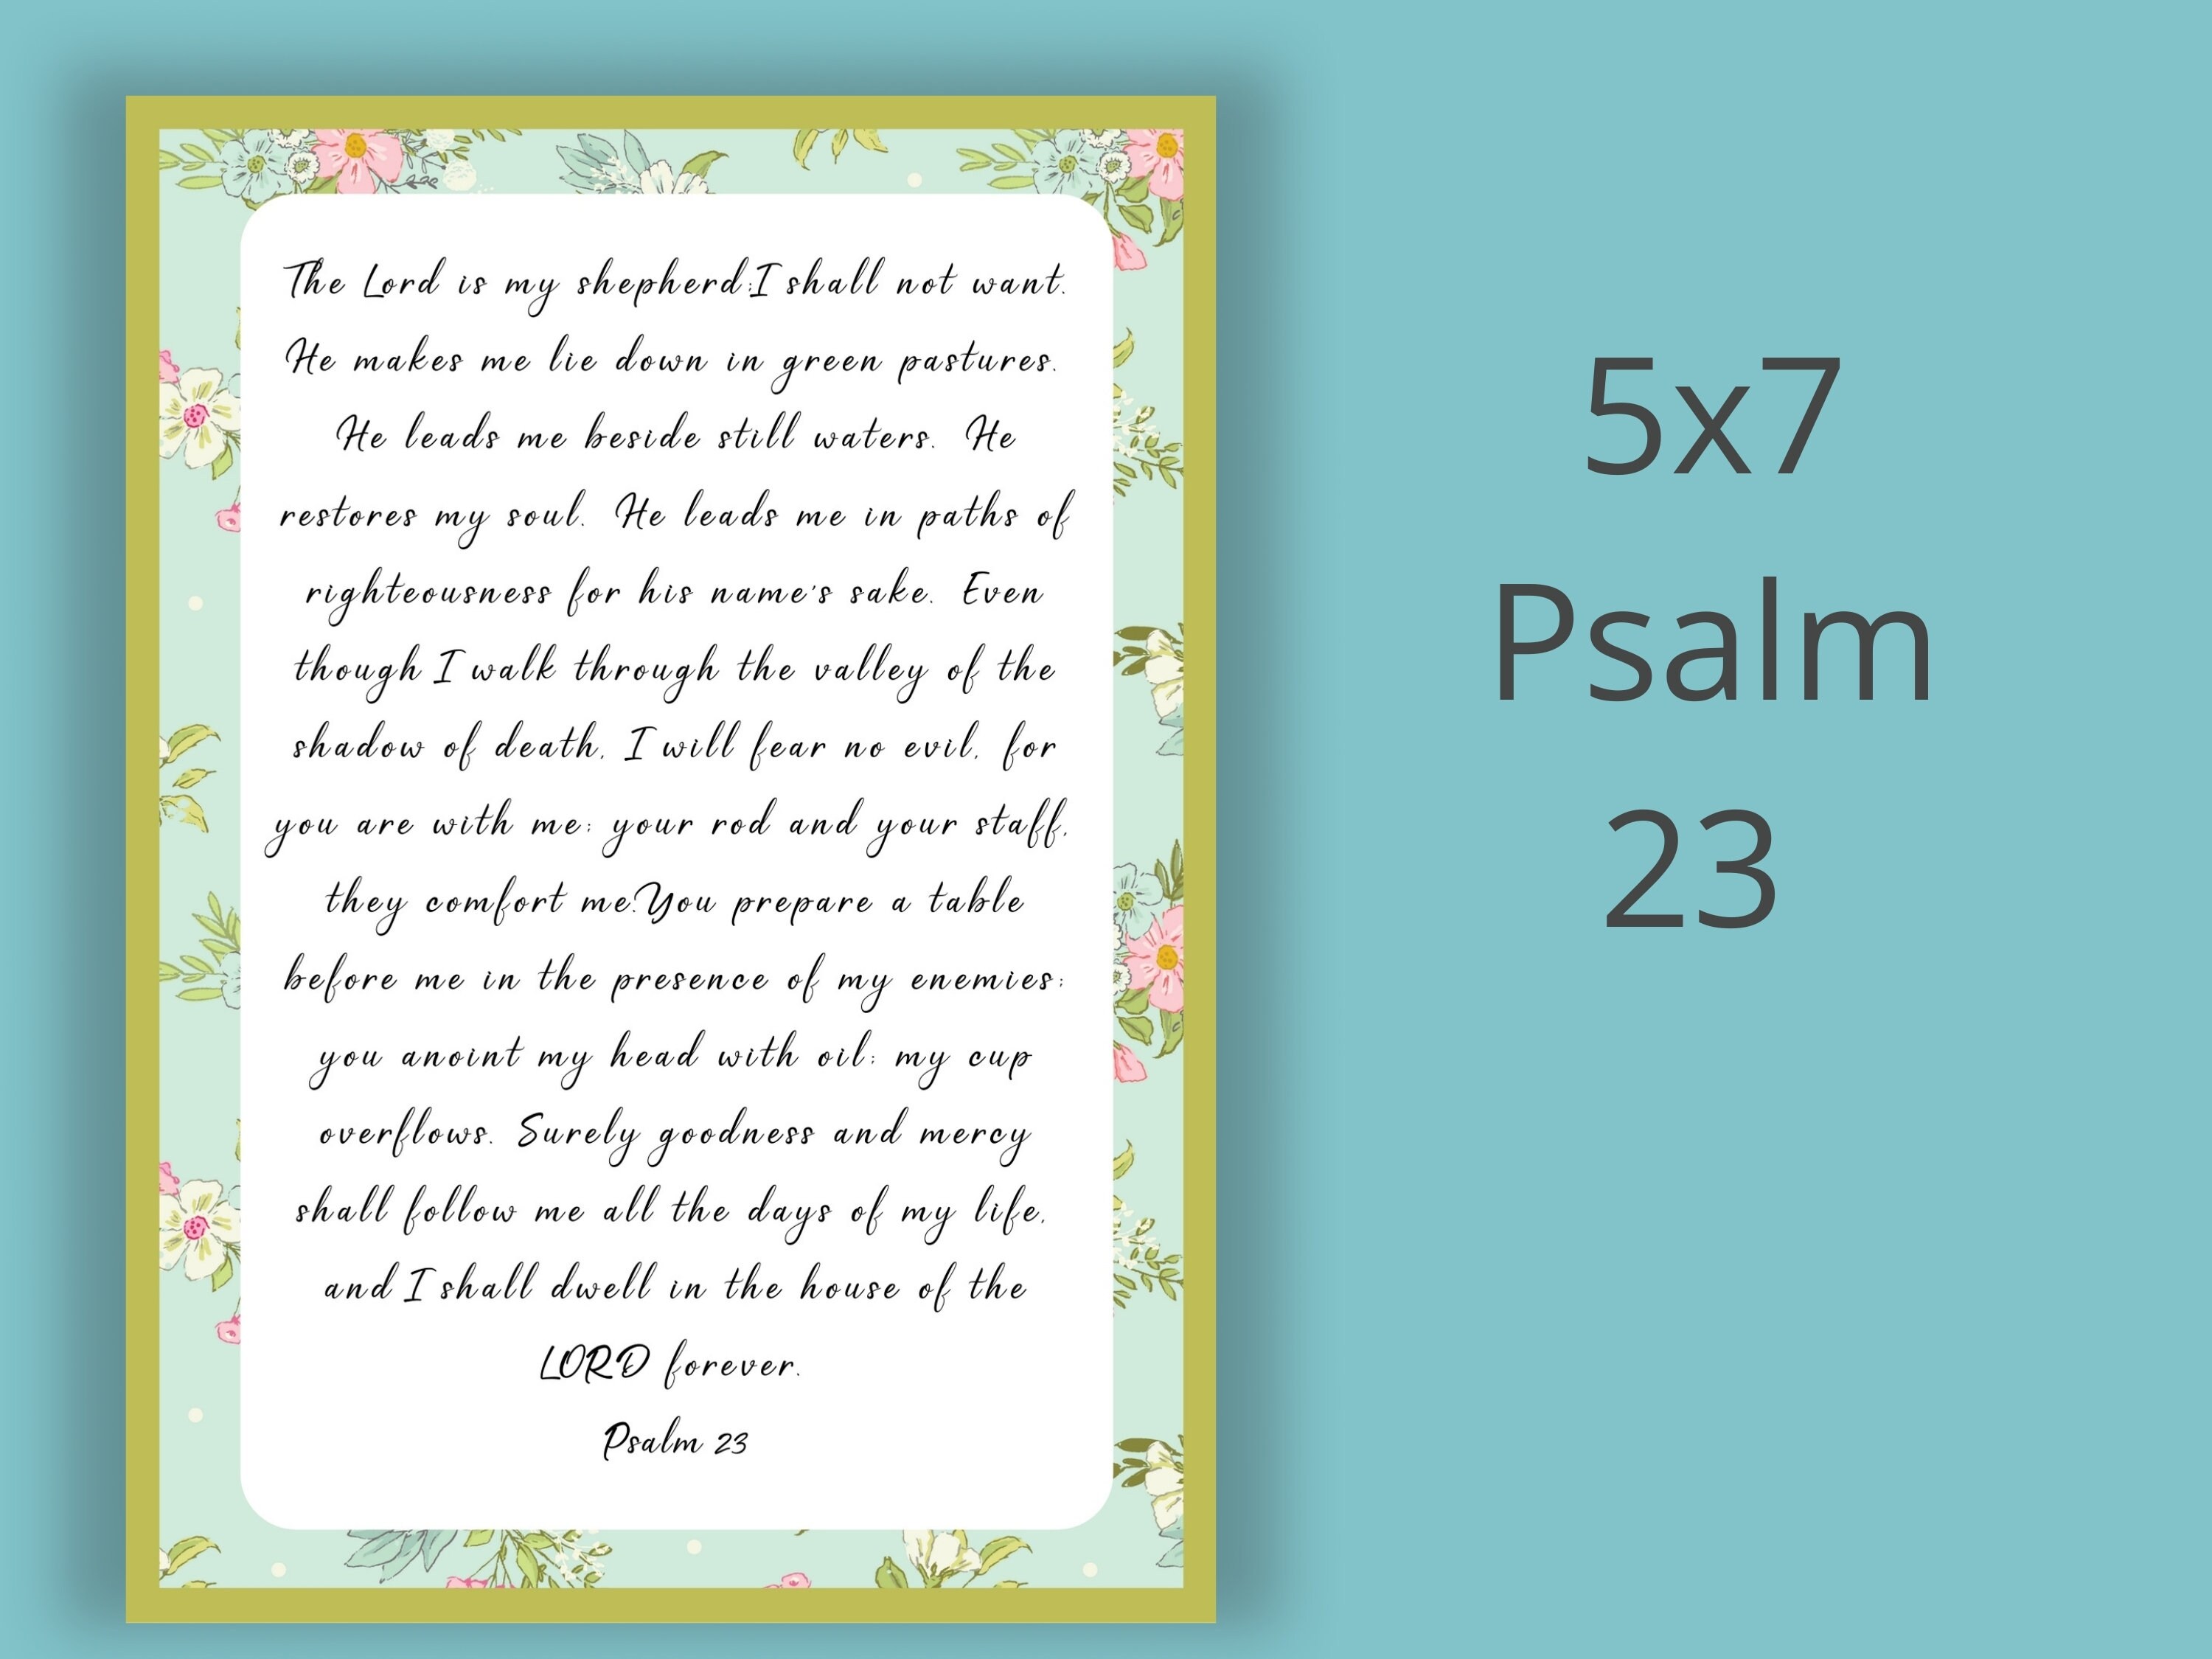 The Lord is my shepherd;I shall not want.
He makes me lie down in green pastures.
He leads me beside still waters. He
restores my soul. He leads me in paths of
righteousness for his name's sake. Even
though I walk through the valley of the
shadow of death, I will fear no evil, for
you are with me; your rod and your staff,
they comfort me.You prepare a table
before me in the presence of my enemies;
you anoint my head with oil; my cup
overflows. Surely goodness and mercy
shall follow me all the days of my life,
and I shall dwell in the house of the
LORD forever.
Psalm 23
5x7
Psalm
23